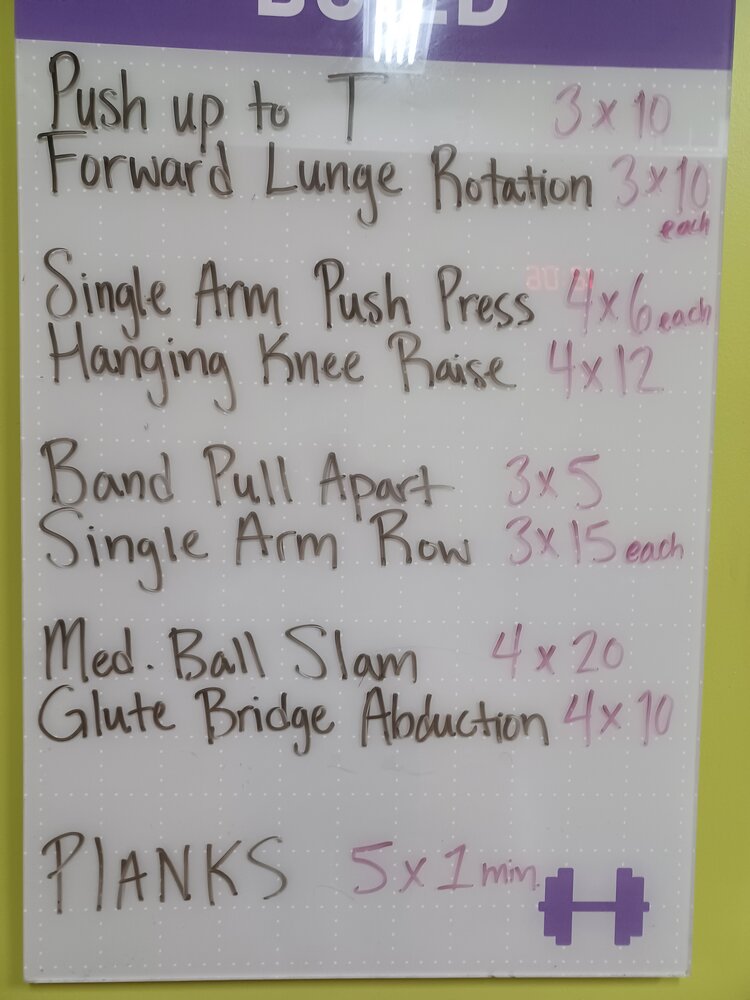 BUILD
Push up to T 3 x 10
Forward Lunge Rotation 3 x 10
each
Single Arm Push Press 4 x 6 each
Hanging Knee Raise 4 x 12
Band Pull Apart 3 x 5
Single Arm Row 3 x 15 each
Med. Ball Slam 4 x 20
Glute Bridge Abduction 4 x 10
PlANKS 5 x 1 min.